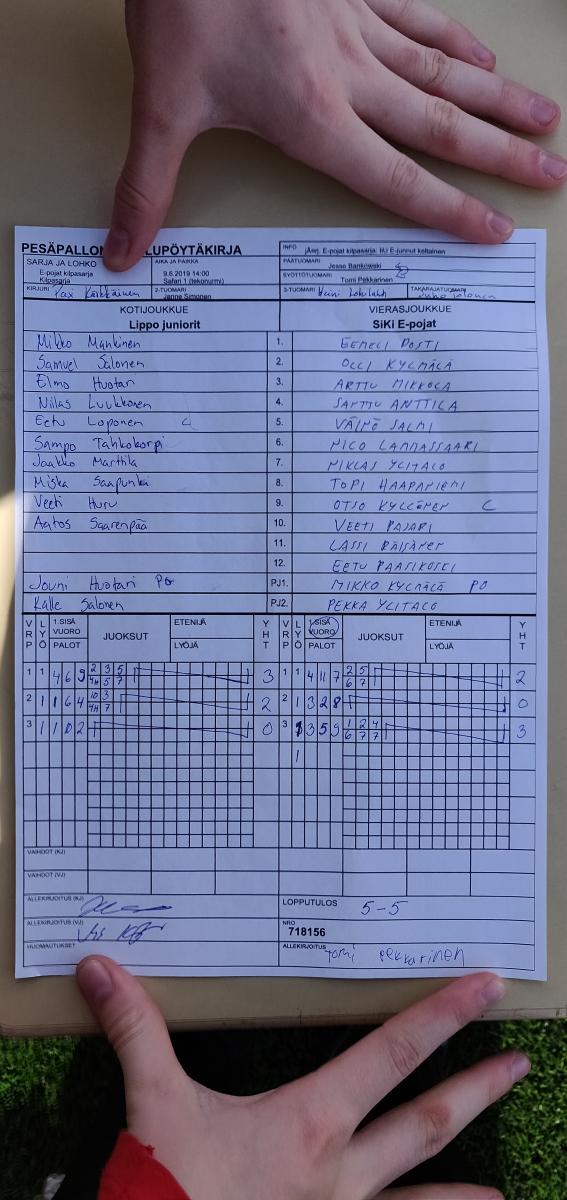 PESÄPALLON LUPÖYTÄKIRJA
SARJA JA LOHKO
E-pojat kilpasarja
Kilpasarja
AIKA JA PAIKKA
9.6.2019 14:00
Safari 1 (tekonurmi)
INFO
E-pojat kilpasarja
PÄÄTUOMARI
SYÖTTÖTUOMARI
Tomi Pekkarinen
KIRJURI
Kärkkäinen
2-TUOMARI
Janne Simonen
3-TUOMARI
TAKARAJATUOMARI
KOTIJOUKKUE
Lippo juniorit
VIERASJOUKKUE
SiKi E-pojat
Mikko Mankinen 1. EEMELI POSTI
Samuel Salonen 2. OLLI KYLMÄLÄ
Elmo Huotari 3. ARTTU MIKKOLA
Niilas Luukkonen 4. SANTTU ANTTILA
Eetu Loponen C 5. VÄINÖ SALMI
Sampo Tahkokorpi 6. NICO LAMMASSAARI
Jaakko Marttila 7. NIKLAS YLITALO
Miska Saapunki 8. TOPI HAAPANIEMI
Veeti Huru 9. OTSO KYLLÖNEN C
Aatos Saarenpää 10. VEETI PAJARI
11. LASSI RÄISÄNEN
12. EETU PAASIKOSKI
Jouni Huotari PJ1. MIKKO KYLMÄLÄ PO
Kalle Salonen PJ2. PEKKA YLITALO
VRP LYÖ 1.SISÄ VUORO PALOT JUOKSUT ETENIJÄ LYÖJÄ YHT VRP LYÖ 1.SISÄ VUORO PALOT JUOKSUT ETENIJÄ LYÖJÄ YHT
1 1 4 6 9 2 3 5 3 1 1 4 11 7 2 5 2
4H 5 7 6 7
2 1 1 6 4 10 3 2 2 1 3 2 8 0
4H 7
3 1 1 0 2 0 3 3 5 9 1 2 4 3
6 7 7
1
VAIHDOT (KJ)
VAIHDOT (VJ)
ALLEKIRJOITUS (KJ)
LOPPUTULOS 5-5
ALLEKIRJOITUS (VJ)
NRO
718156
HUOMAUTUKSET
ALLEKIRJOITUS Tomi Pekkarinen